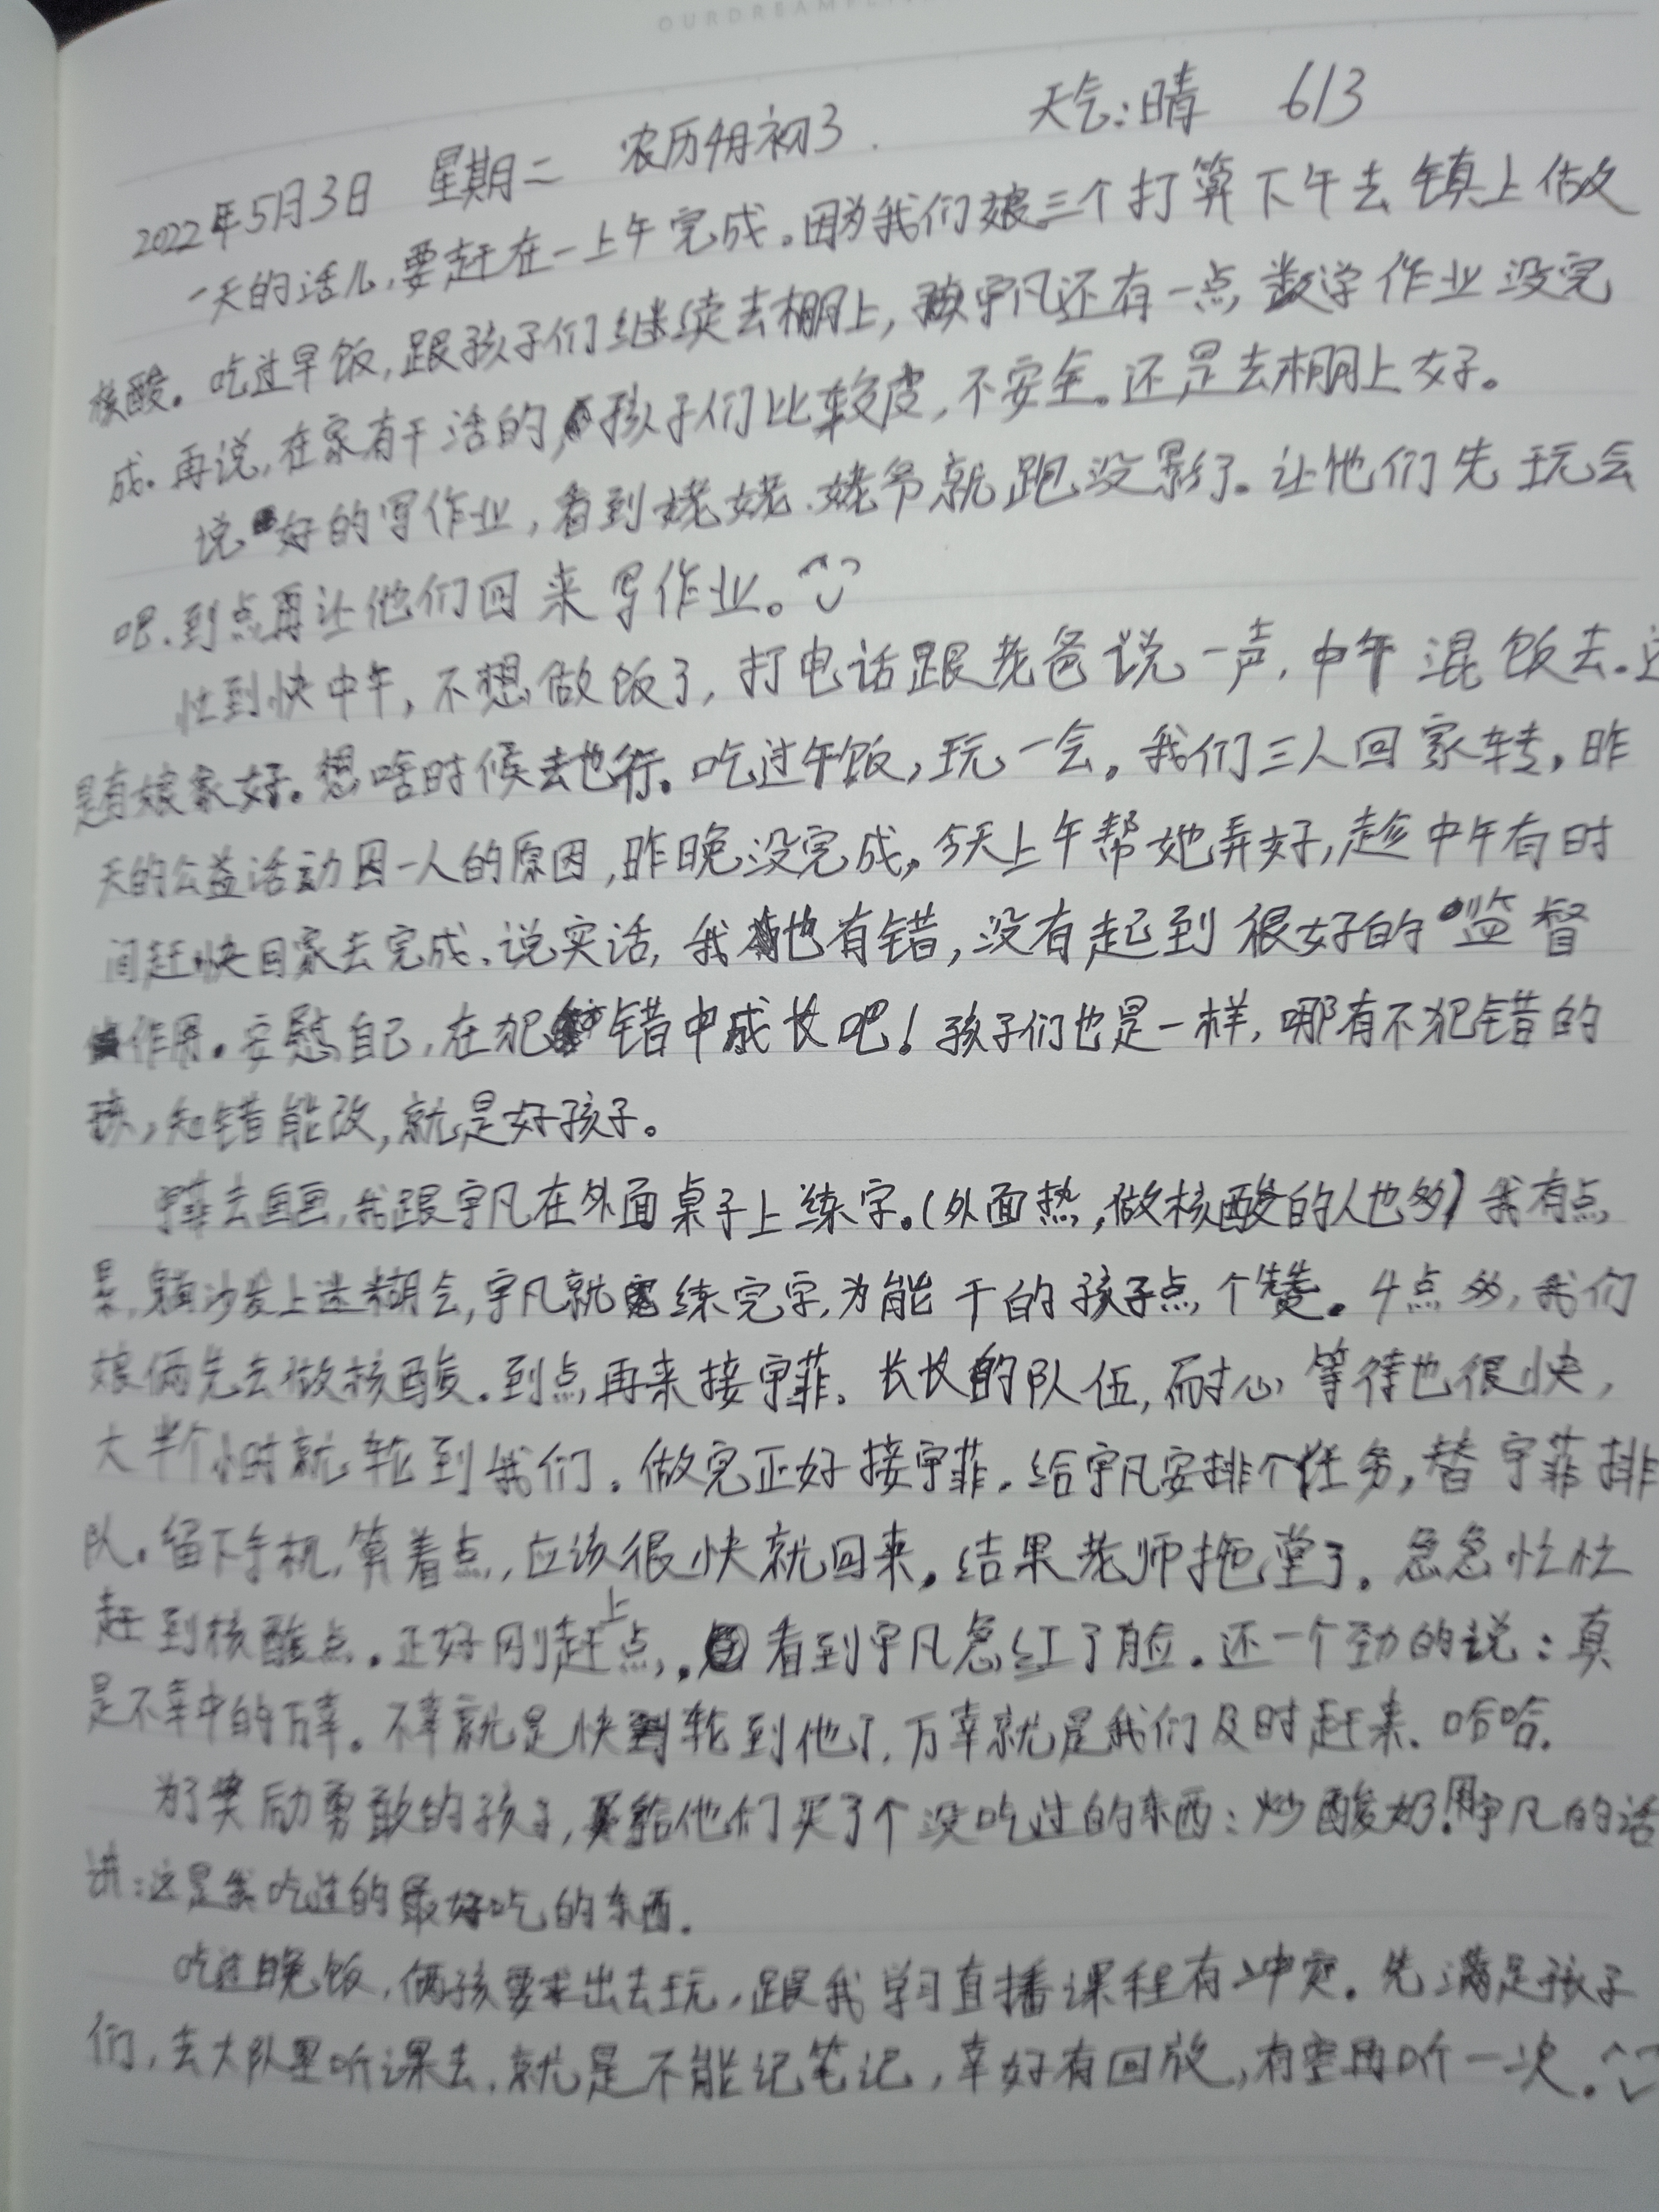 OURDREAM
2022年5月3日 星期二 农历4月初3. 天气:晴 613
一天的活儿,要赶在一上午完成。因为我们娘三个打算下午去镇上做
核酸。吃过早饭,跟孩子们继续去棚上,宇凡还有一点数学作业没完
成。再说,在家有干活的,孩子们比较皮,不安全。还是去棚上好。
说好的写作业,看到姥姥、姥爷就跑没影了。让他们先玩会
吧.到点再让他们回来写作业。
忙到快中午,不想做饭了,打电话跟老爸说一声,中午混饭去.还
是有娘家好。想啥时候去也行。吃过午饭,玩一会。我们三人回家转,昨
天的公益活动因一人的原因,昨晚没完成,今天上午帮她弄好,趁中午有时
间赶快回家去完成、说实话,我也有错,没有起到很好的监督
作用。安慰自己,在犯错中成长吧!孩子们也是一样,哪有不犯错的
孩,知错能改,就是好孩子。
宇菲去画画,我跟宇凡在外面桌子上练字。(外面热,做核酸的人也多)我有点
累,躺沙发上迷糊会,宇凡就练完字,为能干的孩子点个赞。4点多,我们
娘俩先去做核酸.到点再来接宇菲、长长的队伍,耐心等待也很快,
大半个小时就轮到我们.做完正好接宇菲.给宇凡安排个任务,替宇菲排
队。留下手机,算着点,应该很快就回来,结果老师拖堂了.急急忙忙
赶到核酸点.正好刚赶上点,看到宇凡急红了脸.还一个劲的说:真
是不幸中的万幸。不幸就是快轮到他了,万幸就是我们及时赶来.哈哈.
为了奖励勇敢的孩子,给他们买了个没吃过的东西:炒酸奶!用宇凡的话
讲:这是我吃过的最好吃的东西.
吃过晚饭,俩孩要求出去玩,跟我学习直播课程有冲突.先满足孩子
们,去大队里听课去,就是不能记笔记,幸好有回放,有空再听一次.